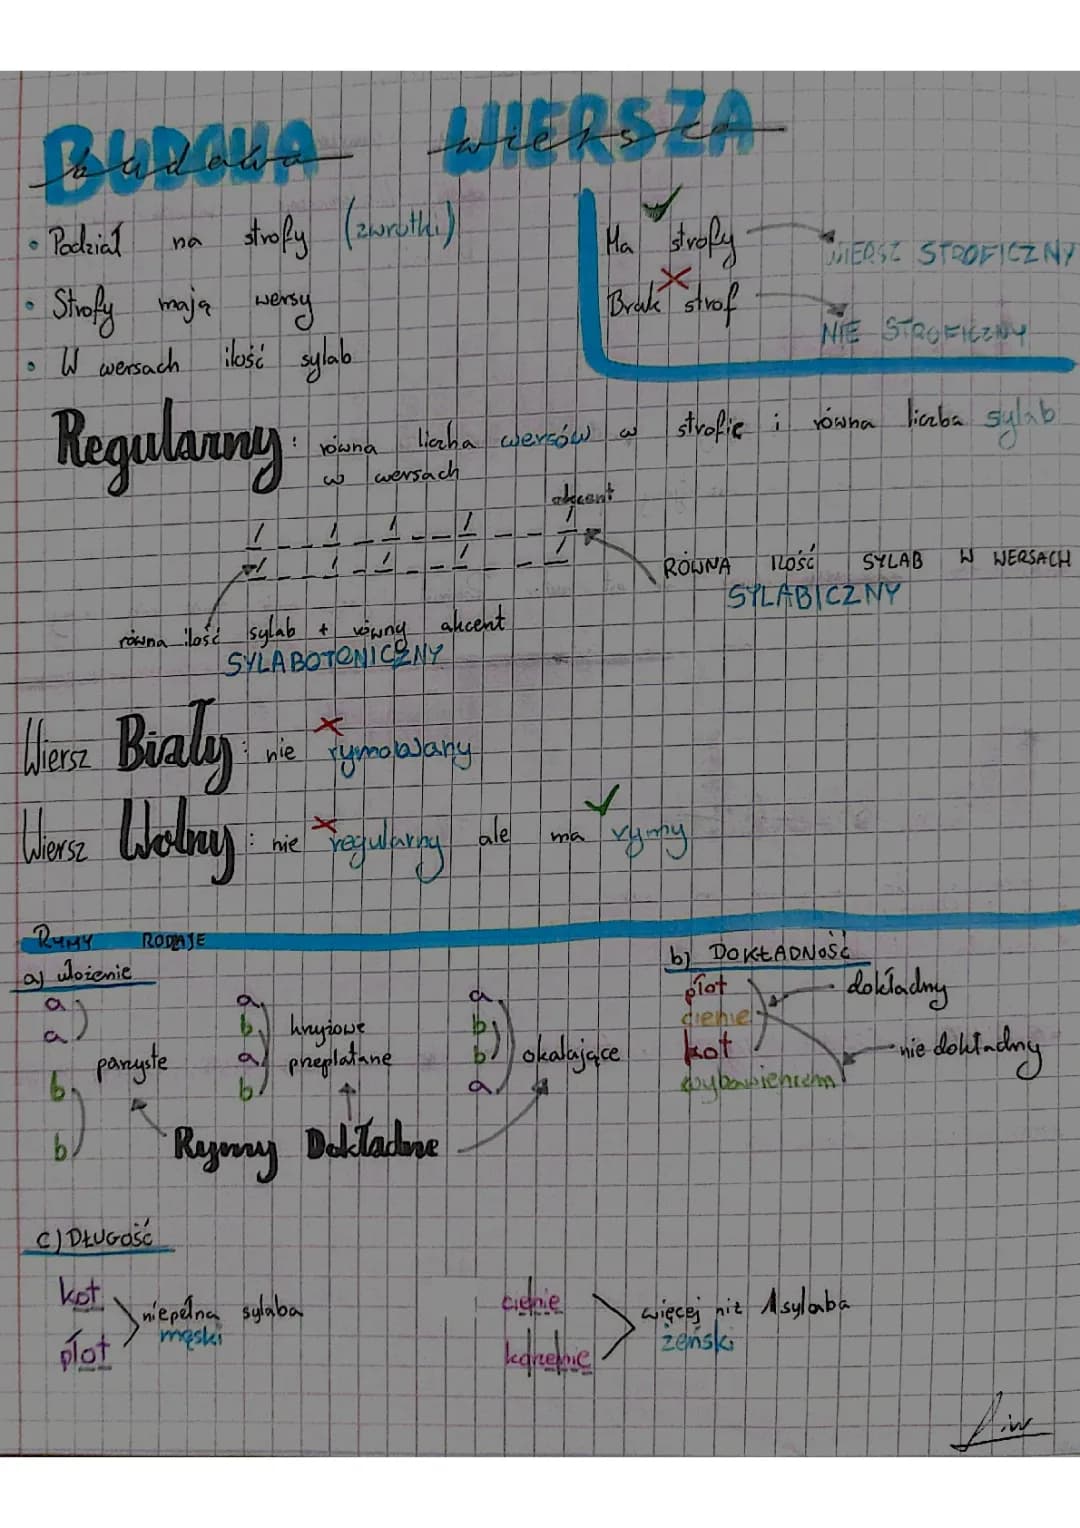 BUDOWA WIERSZA
budowa wiersza
• Podział na strofy (zwrotki)
• Strofy mają wersy
• W wersach ilość sylab
Ma strofy WIERSZ STROFICZNY
Brak strof NIE STROFICZNY
Regularny: równa liczba wersów w strofie i równa liczba sylab
w wersach
akcent
RÓWNA ILOŚĆ SYLAB W WERSACH
SYLABICZNY
równa ilość sylab + równy akcent
SYLABOTONICZNY
Wiersz Biały: nie rymowany
Wiersz Wolny: nie regularny ale ma rymy
RYMY RODZAJE
a) ułożenie
a
a
b
b
parzyste
a
b
a
b
krzyżowe
przeplatane
a
b
b
a
okalające
Rymy Dokładne
b) DOKŁADNOŚĆ
płot
cienie
kot
wybawieniem
dokładny
nie dokładny
c) DŁUGOŚĆ
kot
płot
niepełna sylaba
męski
cienie
korzenie
więcej niż 1 sylaba
żeński